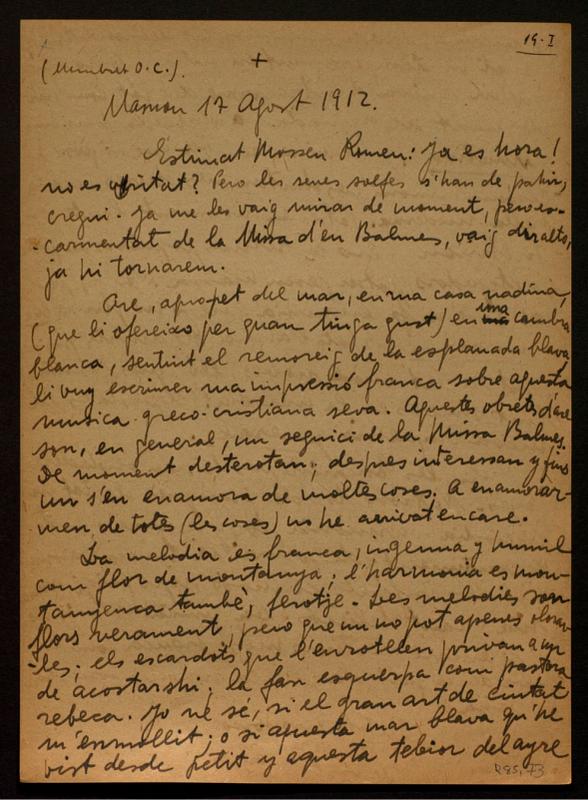 19-I
+
Masnou 17 Agost 1912.
Estimat Mossen Romeu: Ja es hora!
no es veritat? Pero les seves solfes s'han de pahir,
cregui. Ja me les vaig mirar de moment, pero es-
-carmentat de la Missa d'en Balmes, vaig dir alto,
ja hi tornarem.
Are, apropet del mar, en ma casa nadiua,
(que li ofereixo per quan tinga gust) en una cambra
blanca, sentint el remoreig de la esplanada blava,
li vuy escriurer ma impressió franca sobre aquesta
musica greco-cristiana seva. Aquestes obretes d'are
son, en general, un seguici de la Missa Balmes.
De moment desterotan; despres interessan y fins
un s'en enamora de moltes coses. A enamorar-
men de totes (les coses) no he arrivat encare.
La melodia es franca, ingenua y humil
com flor de montanya; l'harmonia es mon-
tanyenca també, ferotje. Les melodies son
flors verament, pero que un no pot apenes olorar-
-les; els escardots que l'enrotllen privan a un
de acostarshi; la fan esquerpa com pastora
rebeca. Jo no sé, si el gran art de ciutat
m'enmollit; o si aquesta mar blava qu'he
vist desde petit y aquesta tebior del ayre